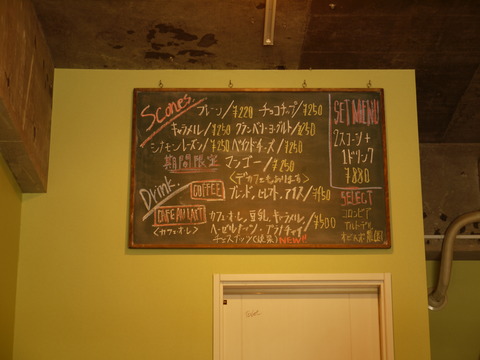 Scones.
プレーン/¥220 チョコチップ/¥250
キャラメル/¥250 クランベリーヨーグルト/¥250
シナモンレーズン/¥250 ベイクドチーズ/¥250
期間限定 マンゴー/¥250
<デカフェもあります>
Drink.
COFFEE ブレンド, セレクト, アイス/¥450
CAFE AU LAIT カフェ・オレ, 豆乳, キャラメル,
<カフェオレ> ヘーゼルナッツ, アラ チャイ/¥500
NEW!!
SET MENU
2スコーン+
1ドリンク
¥880
SELECT
コロンビア